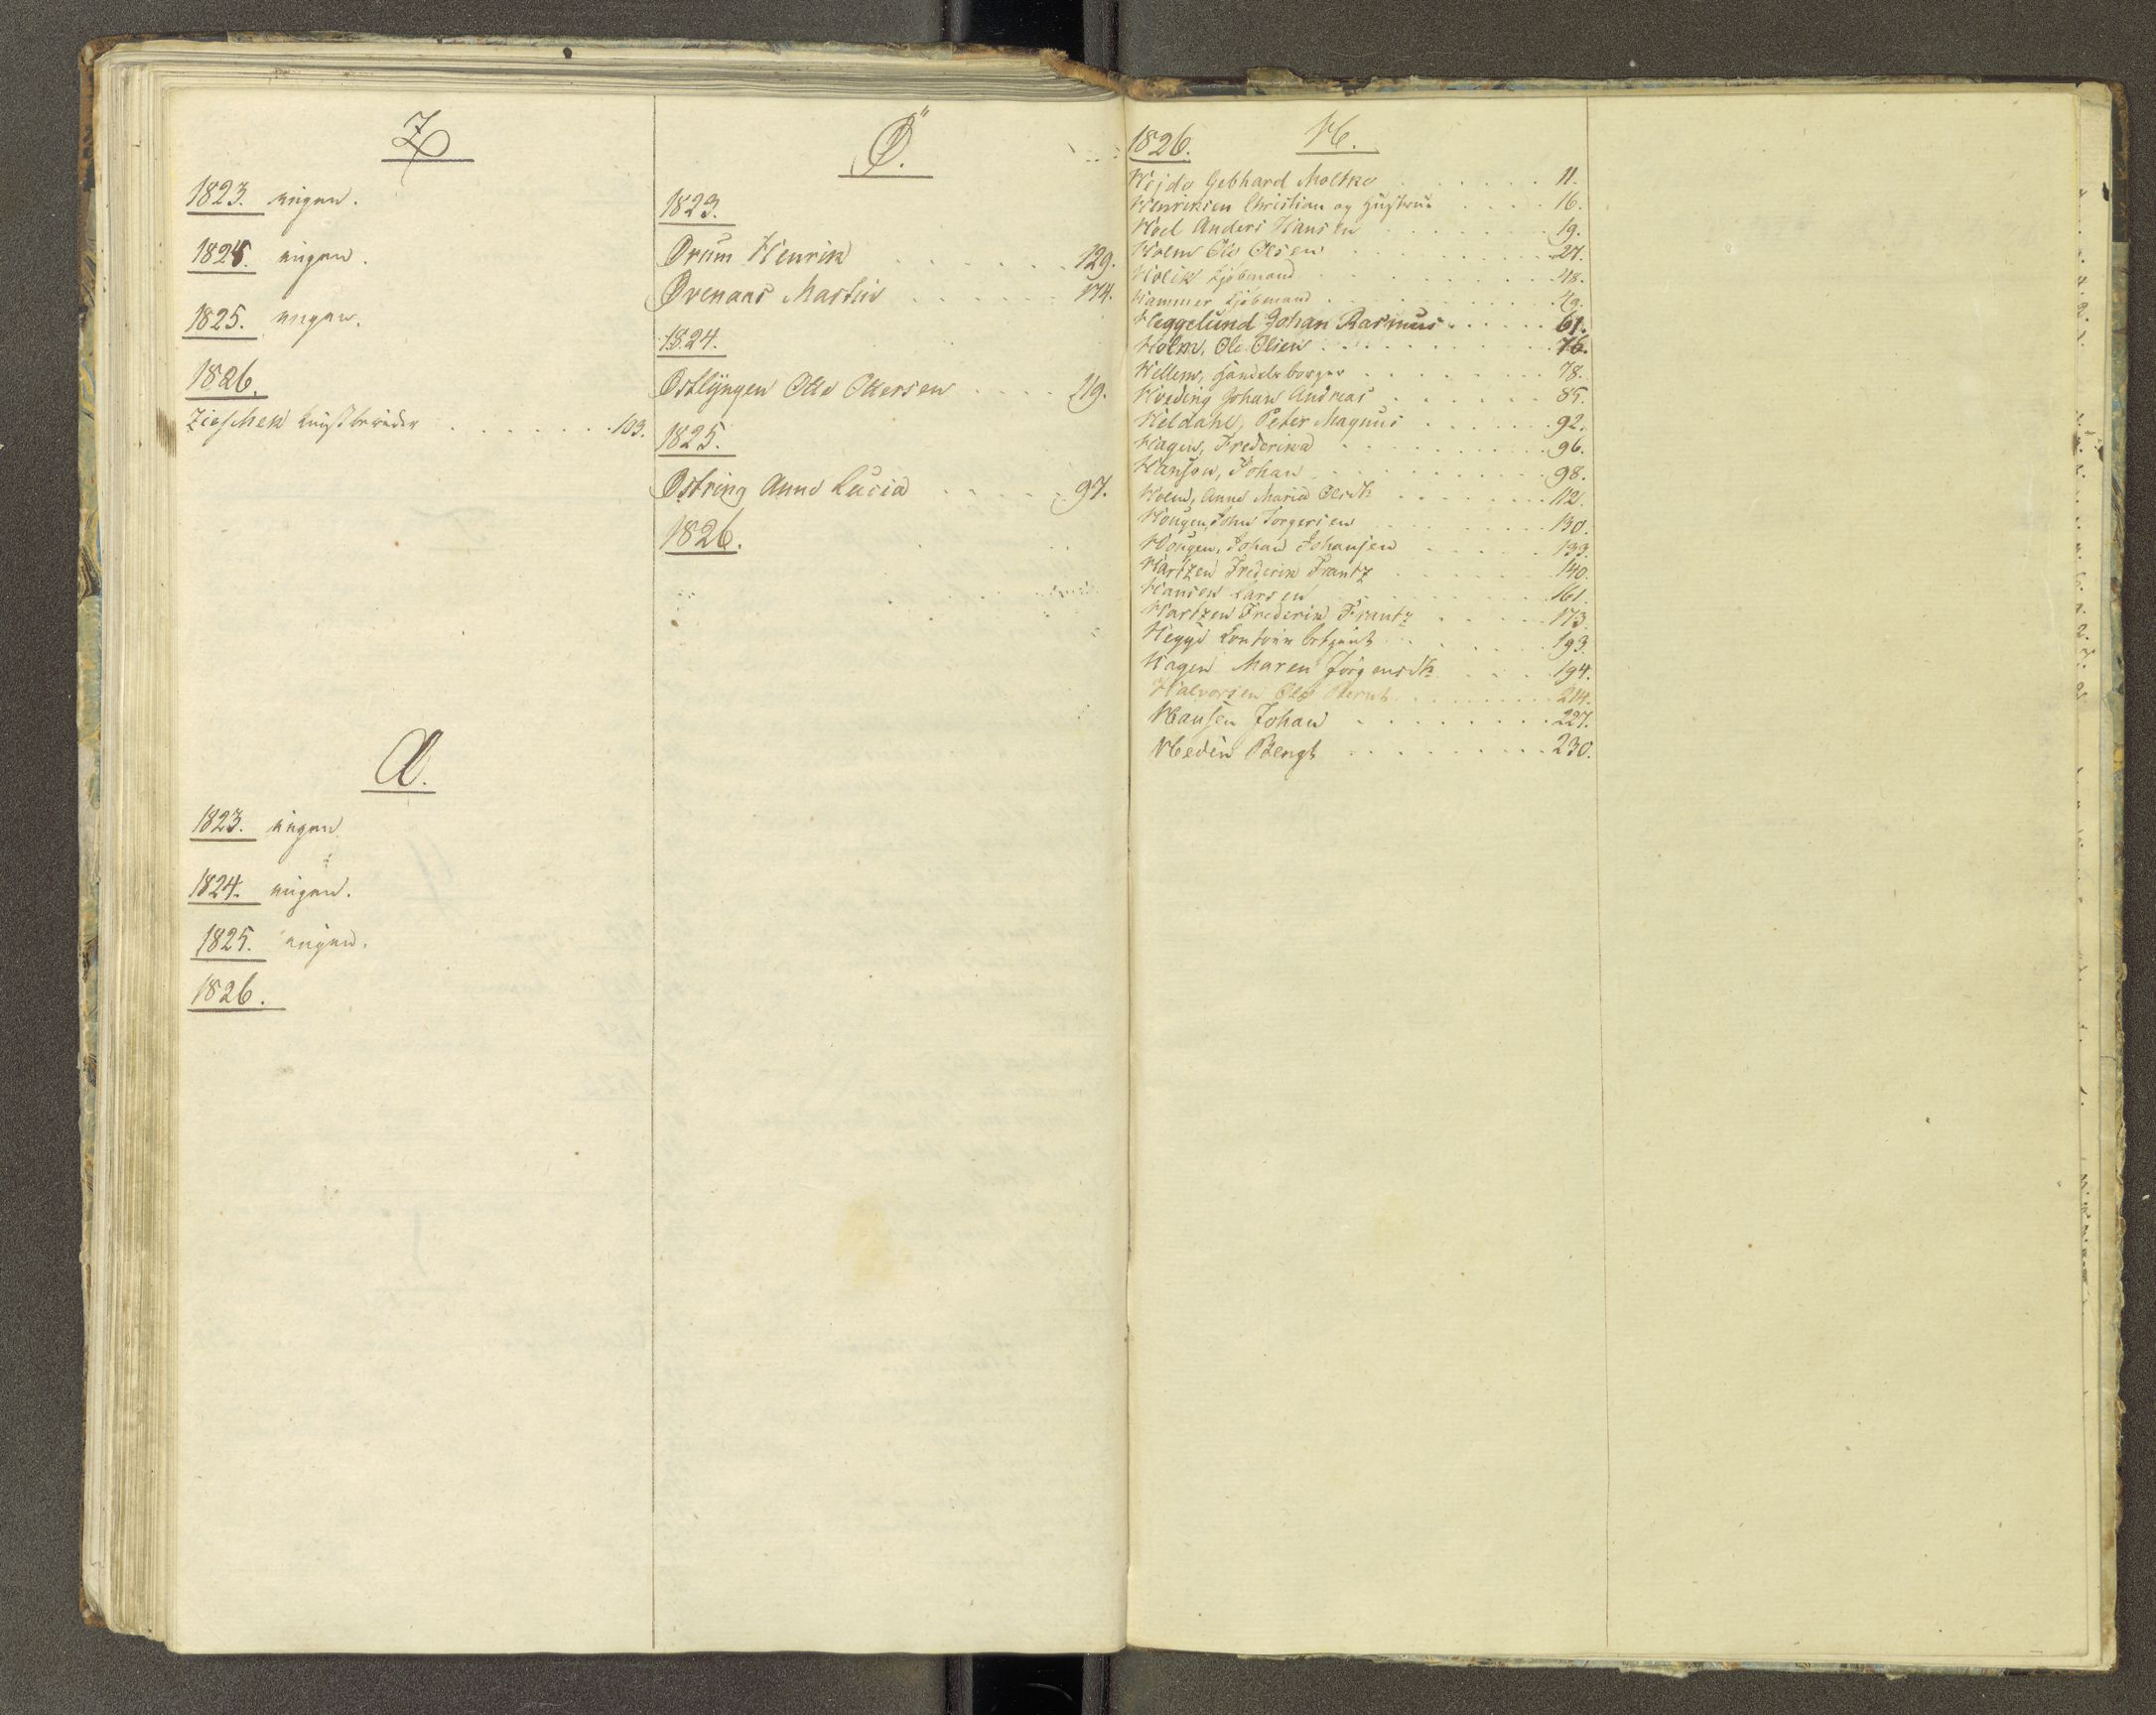 Z
1823. ingen.
1824. ingen.
1825. ingen.
1826.
Zieschek 103.
Æ.
1823. ingen
1824. ingen.
1825. ingen.
1826.
Ø.
1823.
Ørum Henrik 129.
Ovenaas Martin 174.
1824.
Ostlyngen Ole Olersen 219.
1825.
Østring Anne Lucia 97.
1826.
1826. H.
Hejde Gebhard Moltke 11.
Henriksen Christian og Hustrue 16.
Hoel Anders Hansen 19.
Holm Ole Olsen 27.
Holck Kjøbmand 48.
Hammer Kjøbmand 49.
Heggelund Johan Rasmus 61.
Holm, Ole Olsen 76.
Hellem, Handelsborger 78.
Hveding Johan Andreas 85.
Heldahl, Peter Magnus 92.
Hagen, Frederika 96.
Hansen, Johan 98.
Holm, Anne Maria Olsdtr 112.
Hougen, John Torgersen 130.
Hougen, Johan Johansen 133.
Hartzen Frederik Frantz 140.
Hansen Larsen 161.
Hartzen Frederik Frantz 173.
Hegge Contoir betjent 193.
Hagen Maren Jörgensdtr 194.
Halvorsen Ole Bernt 214.
Hansen Johan 227.
Hedin Bengt 230.